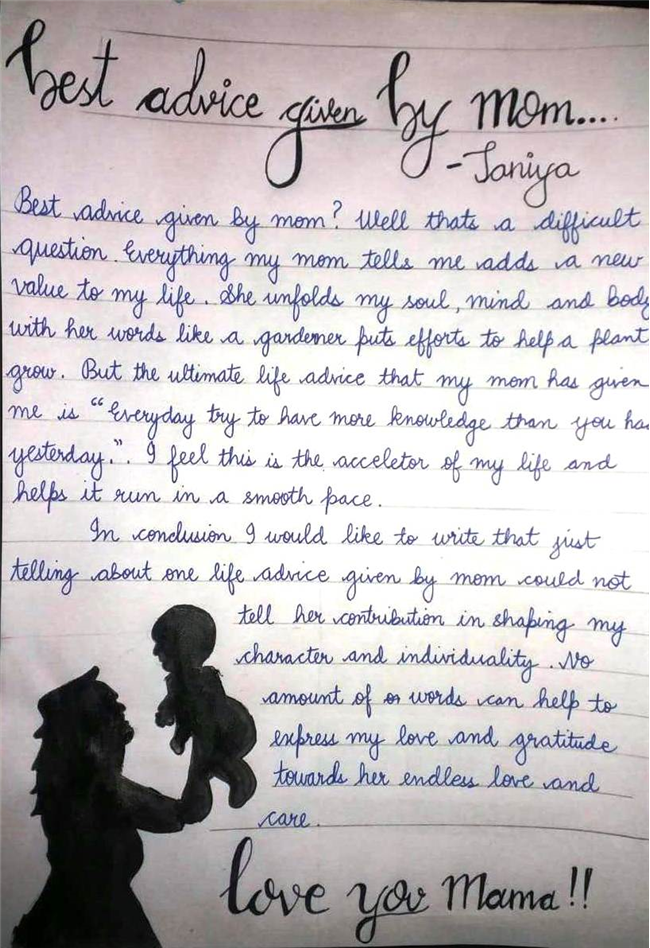 best advice given by mom....
-Taniya
Best advice given by mom? Well thats a difficult
question. Everything my mom tells me adds a new
value to my life. She unfolds my soul, mind and body
with her words like a gardener puts efforts to help a plant
grow. But the ultimate life advice that my mom has given
me is "Everyday try to have more knowledge than you had
yesterday.". I feel this is the acceletor of my life and
helps it run in a smooth pace.
In conclusion I would like to write that just
telling about one life advice given by mom could not
tell her contribution in shaping my
character and individuality. No
amount of words can help to
express my love and gratitude
towards her endless love and
care.
love you Mama!!